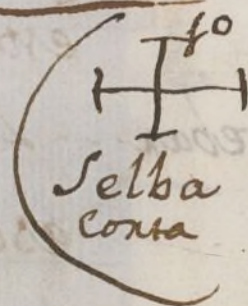 fo
Selba
conta